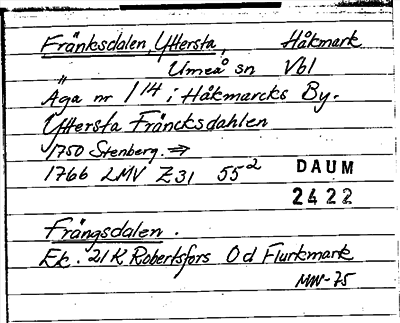 Fränksdalen, Yttersta, Håkmark
" Umeå sn Vbl
Äga nr 1/14 i Håkmarcks By.
Yttersta Fräncksdahlen
1750 Stenberg. ⇒
1766 LMV Z31 55² DAUM
2422
Frängsdalen.
Ek. 21K Robertsfors Od Flurkmark
MW-75